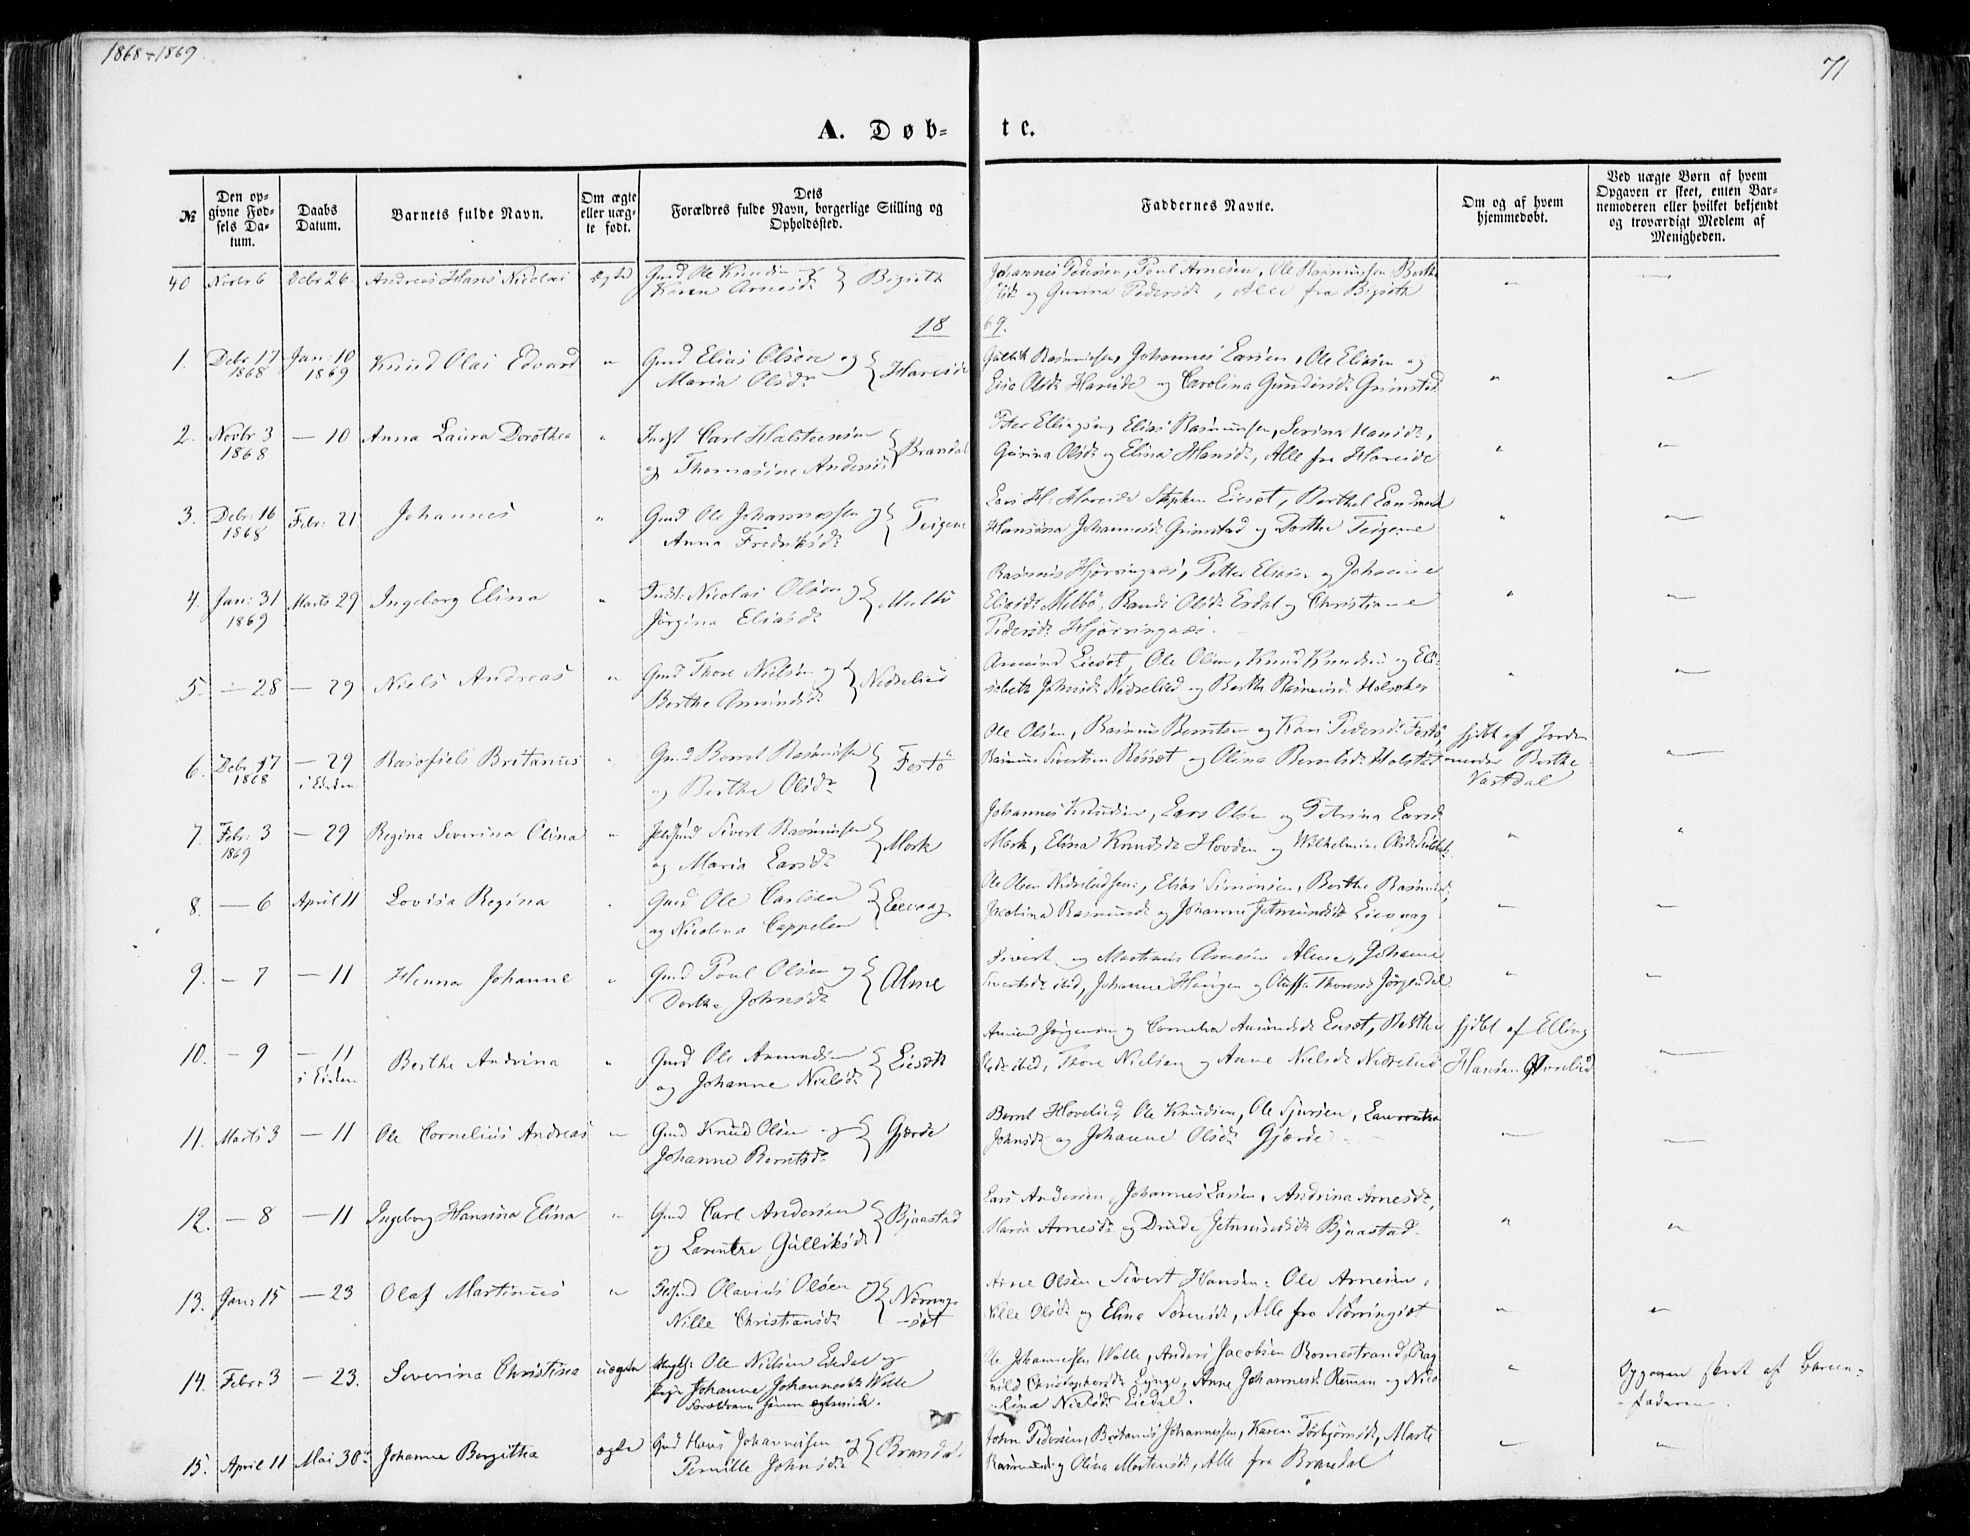 1868-1869
71
A. Døb-
te.
№
Den op-
givne Fød-
sels Da-
tum.
Daabs
Datum.
Barnets fulde Navn.
Om ægte
eller uæg-
te født.
Dets
Forældres fulde Navn, borgerlige Stilling og
Opholdssted.
Faddernes Navne.
Om og af hvem
hjemmedøbt.
Ved uægte Børn af hvem
Opgaven er skeet, enten Bar-
nemoderen eller hvilket bekjendt
og troværdigt Medlem af
Menigheden.
40 Novbr 6 Debr 26 Andreas Hans Nicolai ægte Gmd Ole Knudsen og
Karen Arnesdr } Bigseth
Johannes Pedersen, Poul Arnesen, Ole Rasmussen, Berthe
Olsdr og Gurina Pedersdr, Alle fra Bigseth
18
69.
1. Debr 17 Jan: 10 Knud Olai Edvard " Gmd Elias Olsen og
1868 1869 Maria Olsdr } Hareide
Gullik Rasmussen, Johannes Larsen, Ole Eliasen og
Olsdr Hareide og Carolina Gundersdr Grimstad
2. Novbr 3 — 10 Anna Laura Dorothea " Indst Carl Halsteensen
1868 og Thomasine Andersdr } Brandal
Peter Ellingsen, Elias Rasmussen, Serina Hansdr,
Gurina Olsdr og Elina Hansdr, Alle fra Hareide
3. Debr: 16 Febr: 21 Johannes " Gmd Ole Johannessen og
1868 Anna Fredriksdr } Teigene
Lars H. Hareide Stephen Liesæt, Berthel
Hansina Johannesdr Grimstad og Dorthe Teigene
4. Jan: 31 Marts 29 Ingeborg Elina " Indst: Nicolai Olsen og
1869 Jørgina Eliasdr } Melbö
Rasmus Hjørringnæs, Petter Eliasen og Johanne
Eliasdr Melbö, Randi Olsdr Erdal og Christiane
Pedersdr Hjørringnæs.
5. — 28 — 29 Niels Andreas " Gmd Thore Nielsen og
Berthe Amundsdr } Nedrelied
Amund Liesæt, Ole Olsen, Knud Knudsen og Eli-
sabeth Johnsdr Nedrelied og Berthe Rasmusdr Holseker
6. Debr 17 — 29 Britanus " Gmd Bernt Rasmussen
1868 i Eidem og Berthe Olsdr } Festö
Ole Olsen, Rasmus Berntsen og Kari Pedersdr Festö,
Rasmus Sivertsen Røssæt og Olina Berntsdr Holstad
hjdbt af Jorde-
moder Berthe
Vartdal
7. Febr: 3 — 29 Regina Severina Olina " Sivert Rasmussen
1869 og Maria Larsdr } Mork
Johannes Knudsen, Lars Olsen og Petrina Larsdr
Mork, Elina Knudsdr Hovden og Wilhelmine Olsdr
8. — 6 April 11 Lovisa Regina " Gmd Ole Carlsen
og Nicolina Cappelen } Lievaag
Ole Olsen Elias Simonsen, Berthe Rasmusdr,
Jacobina Rasmusdr og Johanne Jetmundsdr Lievaag
9. — 7 — 11 Henna Johanne " Gmd Poul Olsen og
Dorthe Johnsdr } Alme
Sivert og Martinus Arnesen Alme, Johanne
Sivertsdr ibid, Johanne Haugen og Oluffa Thoresdr Jørgendal
10. — 9 — 11 Berthe Andrina " Gmd Ole Amundsen
i Eidem og Johanne Nielsdr } Liesæt
Amund Jørgensen og Cornelia Amundsdr Liesæt, Berthe
ibid, Thore Nielsen og Anne Nielsdr Nedrelied
hjdbt af Elling
Hansen Øvrelid
11. Marts 3 — 11 Ole Cornelius Andreas " Gmd Knud Olsen og
Johanne Berntsdr } Gjærde
Bernt Hovelied, Ole Knudsen, Ole Sjursen, Laurentza
Johnsdr og Johanne Olsdr Gjærde
12. — 8 — 11 Ingeborg Hansina Elina " Gmd Carl Andersen
og Larentze Gulliksdr } Bjaastad
Lars Andersen, Johannes Larsen, Andrina Arnesdr,
Maria Arnesdr og Drude Jetmundsdr Bjaastad.
13. Jan: 15 — 23 Olaf Martinus " Olavius Olsen og
Nille Christiansdr } Nørring-
-sæt
Arne Olsen, Sivert Hansen, Ole Arnesen,
Nille Olsdr og Elina Sørensdr, Alle fra Nörringsæt
14. Febr: 3 — 23. Severina Christina uægte Ungk: Ole Nielsen Eidal og
Pige Johanne Johannesdr Wolle
Forældrene senere ægteviede.
Ole Johannessen Wolle, Anders Jacobsen Romestrand, Rag-
nild Christophersdr Lynge, Anne Johannesdr Remen og Nico-
lina Nielsdr Eidal.
Opgaven skeet af Barne-
faderen.
15. April 11 Mai 30te Johanne Bergitha ægte Gmd Hans Johannessen og
Pernille Johnsdr } Brandal.
John Pedersen, Britanus Johannessen, Karen Torbjørnsdr, Marte
Rasmusdr og Olina Mortensdr, Alle fra Brandal